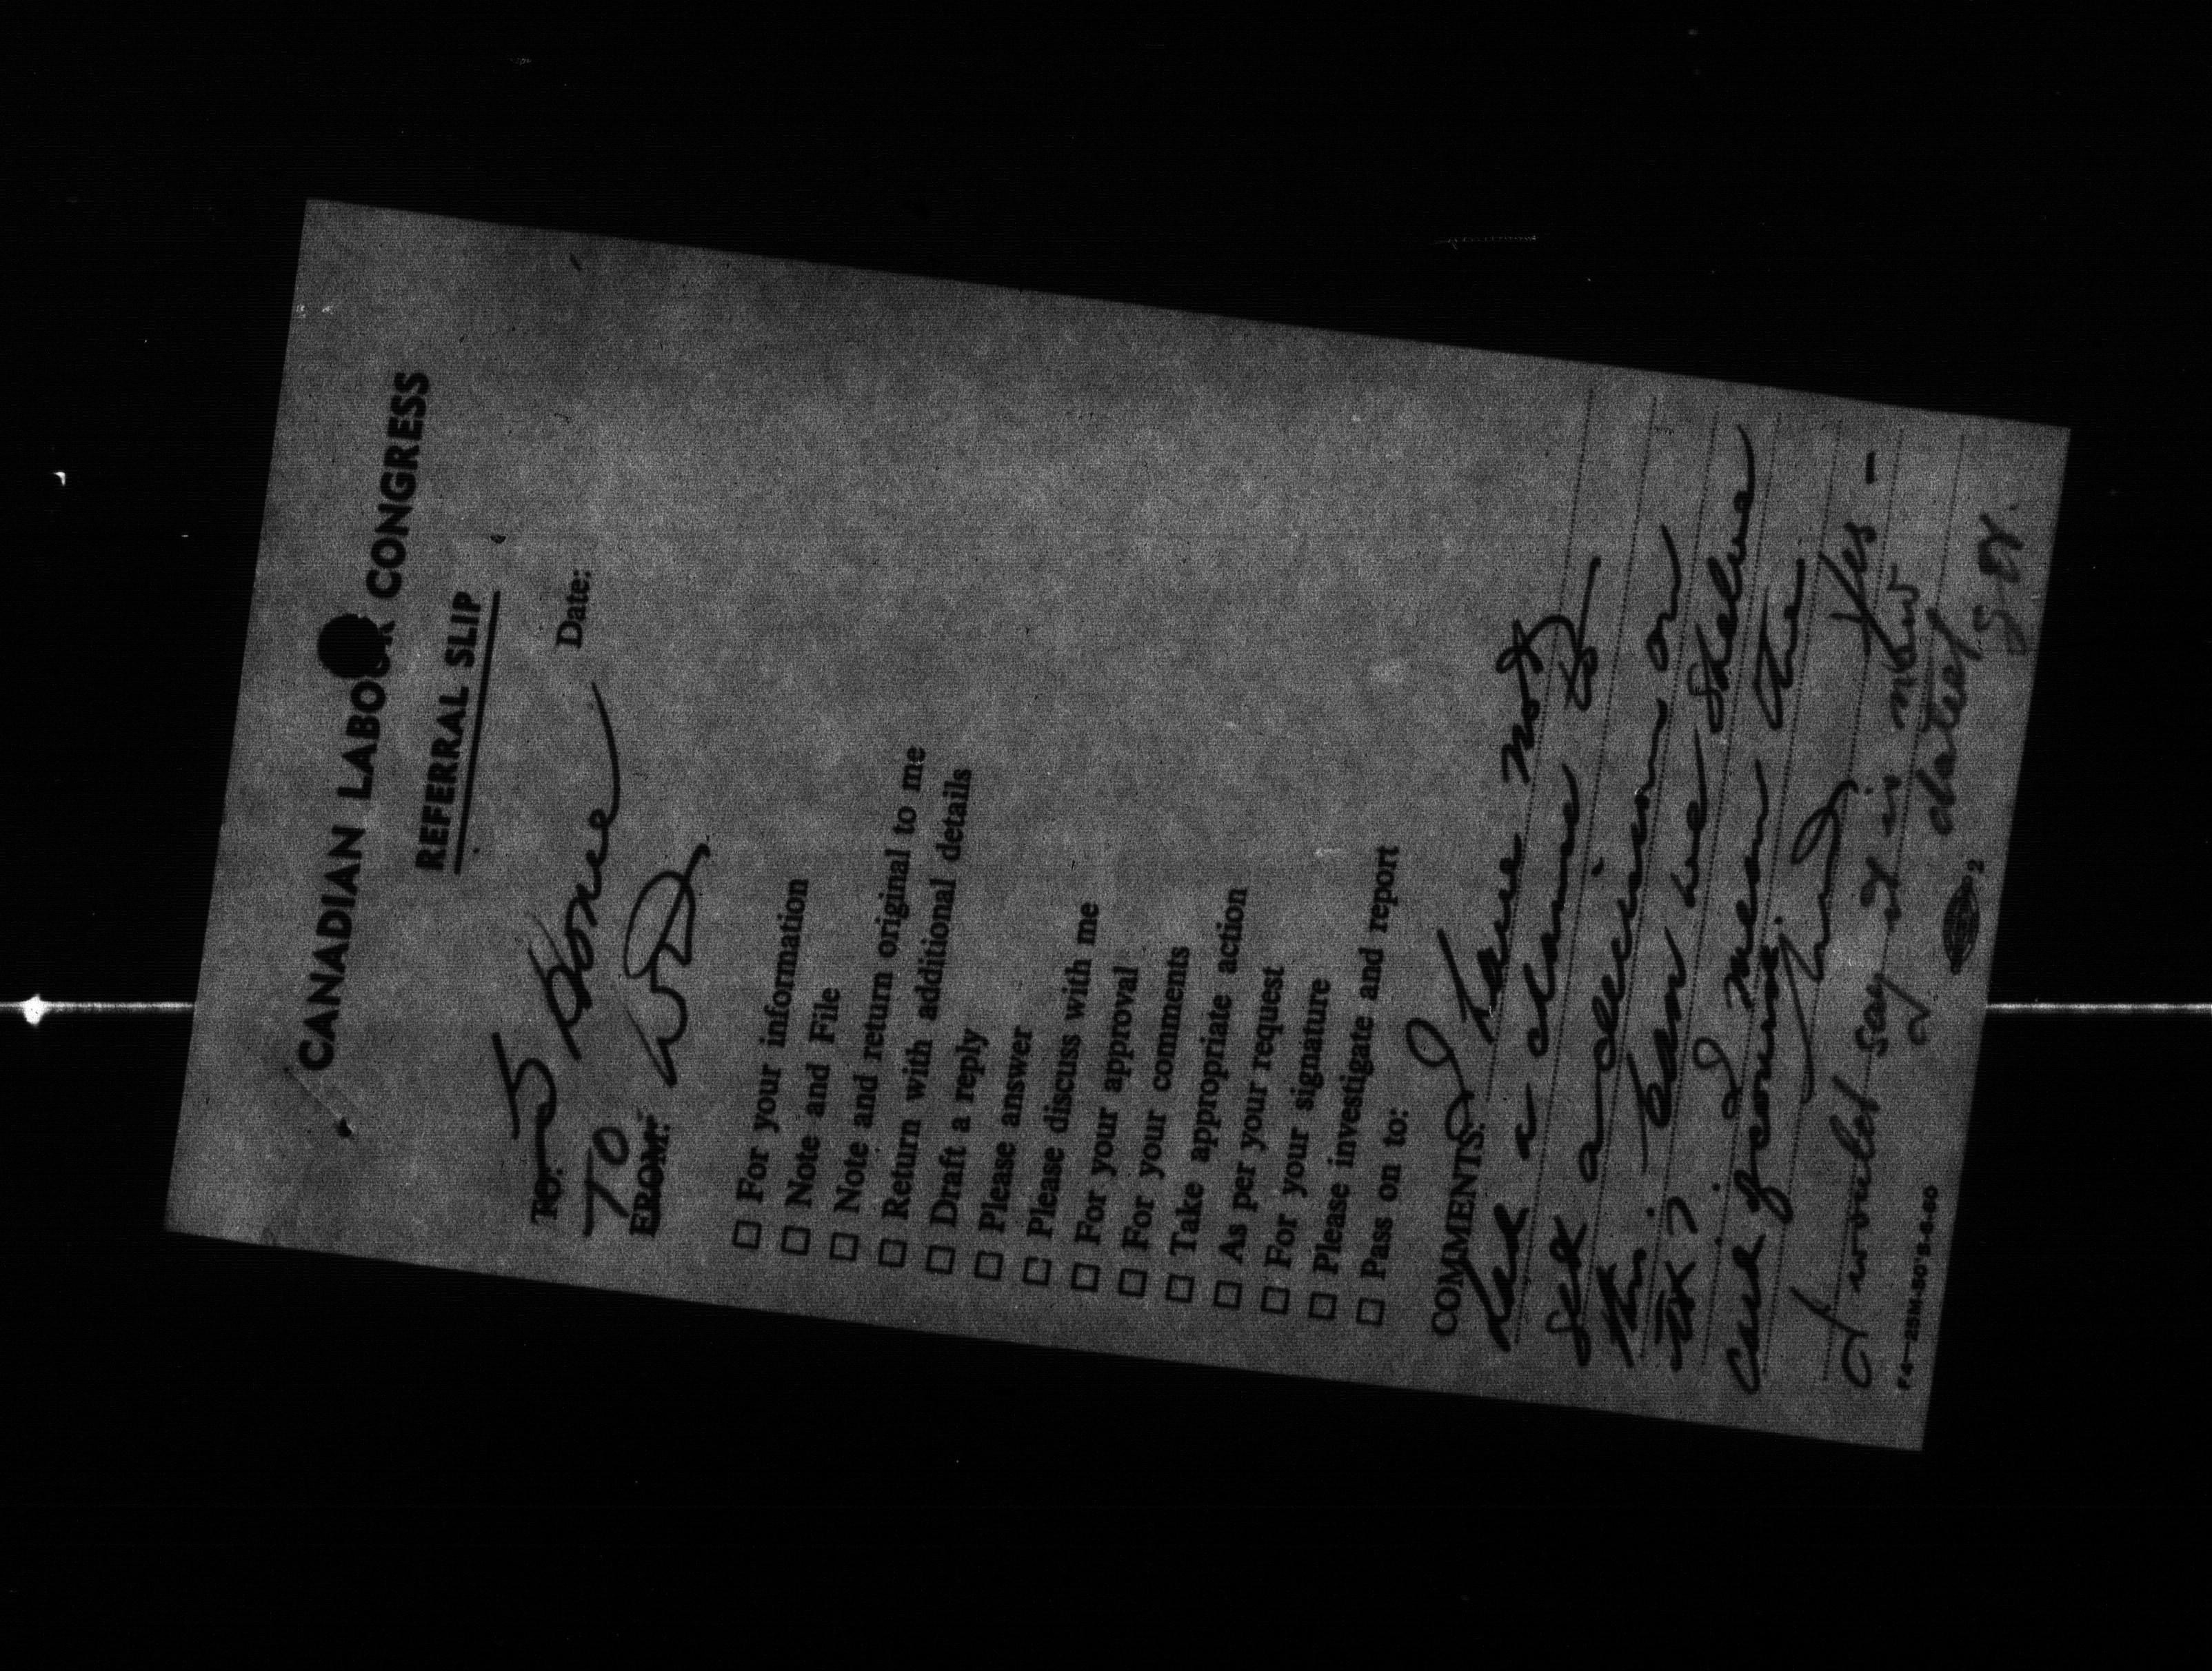 CANADIAN LABOUR CONGRESS
REFERRAL SLIP
TO:
Date:
TO
FROM: WD
☐ For your information
☐ Note and File
☐ Note and return original to me
☐ Return with additional details
☐ Draft a reply
☐ Please answer
☐ Please discuss with me
☐ For your approval
☐ For your comments
☐ Take appropriate action
☐ As per your request
☐ For your signature
☐ Please investigate and report
☐ Pass on to:
COMMENTS: I have not
had a chance to
get a decision on
this. Can we shelve
it? I mean the
card of course.
Yes -
I would say it is now
dated
F4-25M-50'S-8-60
2